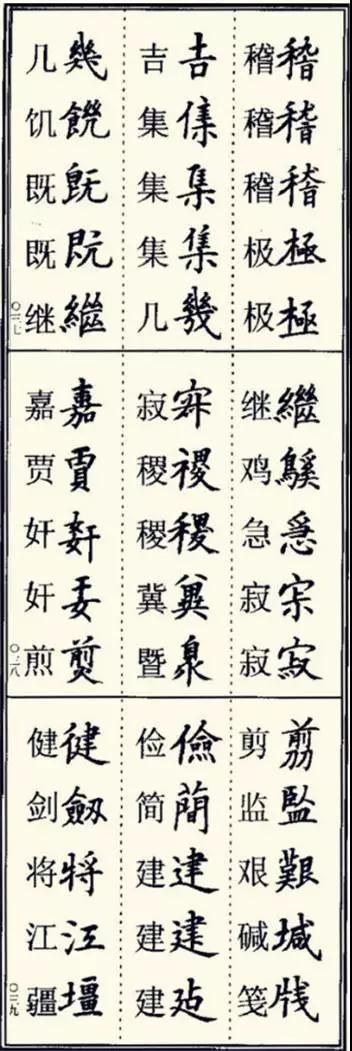 稽稽稽極極
稽稽稽极极
吉集集集幾
吉集集集几
幾饑既既繼
几饥既既继
〇三七
繼鷄急寂寂
继鸡急寂寂
寂稷稷冀臮
寂稷稷冀暨
嘉賈姧㚣煎
嘉贾奸奸煎
〇三八
剪監艱堿牋
剪监艰碱笺
儉簡建建建
俭简建建建
健劒将江壃
健剑将江疆
〇三九